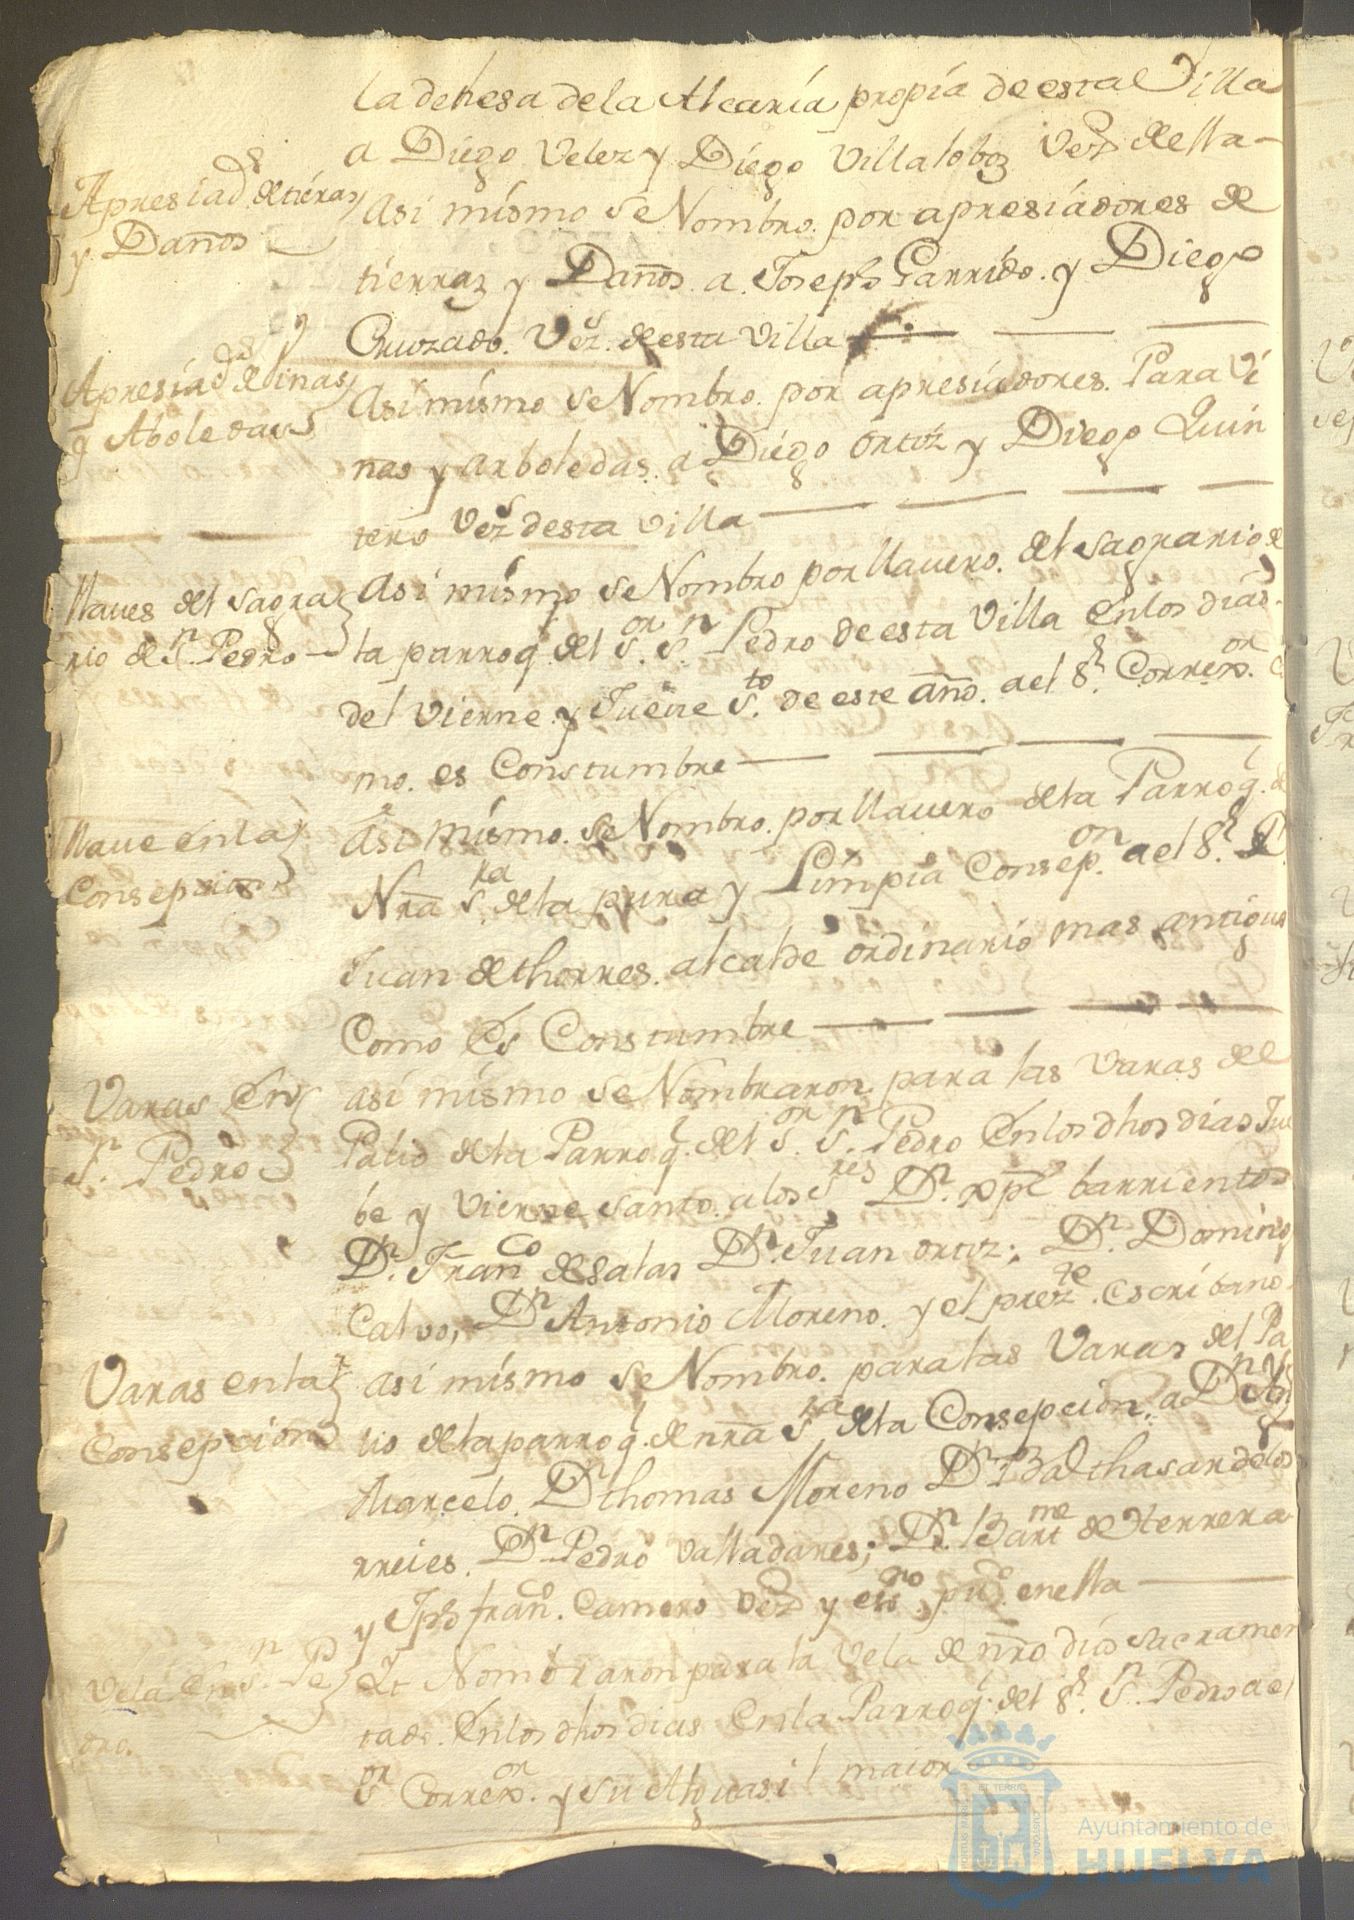 la dehesa de la Alcaría propía de esta Villa
a Diego Velez y Diego Villalobos Vez.s della
Apresíad.s de tíeras
y Daños
Asi mísmo se Nombro. por apresíadores de
tierras y Daños a Joseph Garrído. y Diego
Cruzado. Vez.s de esta Villa
Apresíad.s de Vinas
y Aboledas
Asi mísmo se Nombro. por apresíadores. Para Ví
nas y arboledas. a Diego Ortíz y Diego Quin
tero Vez.s desta Villa
llaues del sagra
rio de S.n Pedro
Asi mísmo se Nombro por llauero. del sagrario de
la parroq.l del S.or S.n Pedro de esta Villa En los días
del Vierne y Jueue S.to de este año. a el S.r Correx.or Co
mo. es Constumbre
llaue en la
Consepcion
Asi mísmo. se Nombro. por llauero de la Parroq.l de
Nra S.ra de la pura y Limpia Consep.on a el S.r D.n
Juan de thorres. alcalde ordinario mas antiguo
Como Es Constumbre
Varas En
S.n Pedro
así mísmo se Nombraron para las Varas del
Palio de la Parroq.l del S.or S.n Pedro En los dhos dias Jue
be y Vierne santo. a los S.res D.n xptl barrientos
D.n Fran.co de Salas D.n Juan ortiz; D.n Domingo
Calvo, D.n Antonio Moreno. y el prez.te escribano
Varas en la
Consepcion
así mísmo se Nombro. para las Varas del Pa
lio de la parroq.l de nra S.ra de la Consepcion. a D.n
Marcelo. D.n thomas Moreno D.n Balthasar de los
rreies. D.n Pedro Valladares; D.n Bart.me de Herrera
y Jph fran.co Camero Vez.o y ess.no pu.co en ella
Vela En S.n Pe
dro.
Nombraron para la Vela de nro díos sacramen
tado. En los dhos dias En la Parroq.l del S.r S.n Pedro a el
S.or Correx.or y su Alguasil maior
Ayuntamiento de
HUELVA